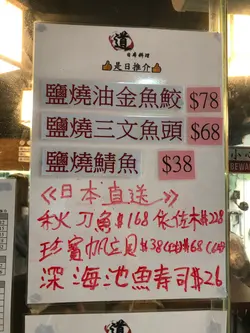 道
日寿料理
是日推介
鹽燒油金魚鮫 $78
鹽燒三文魚頭 $68
鹽燒鯖魚 $38
《日本直送》
秋刀魚$168 佐木$228
珍寶帆立貝$38 $68
深海池魚寿司$26
小心
BEWA